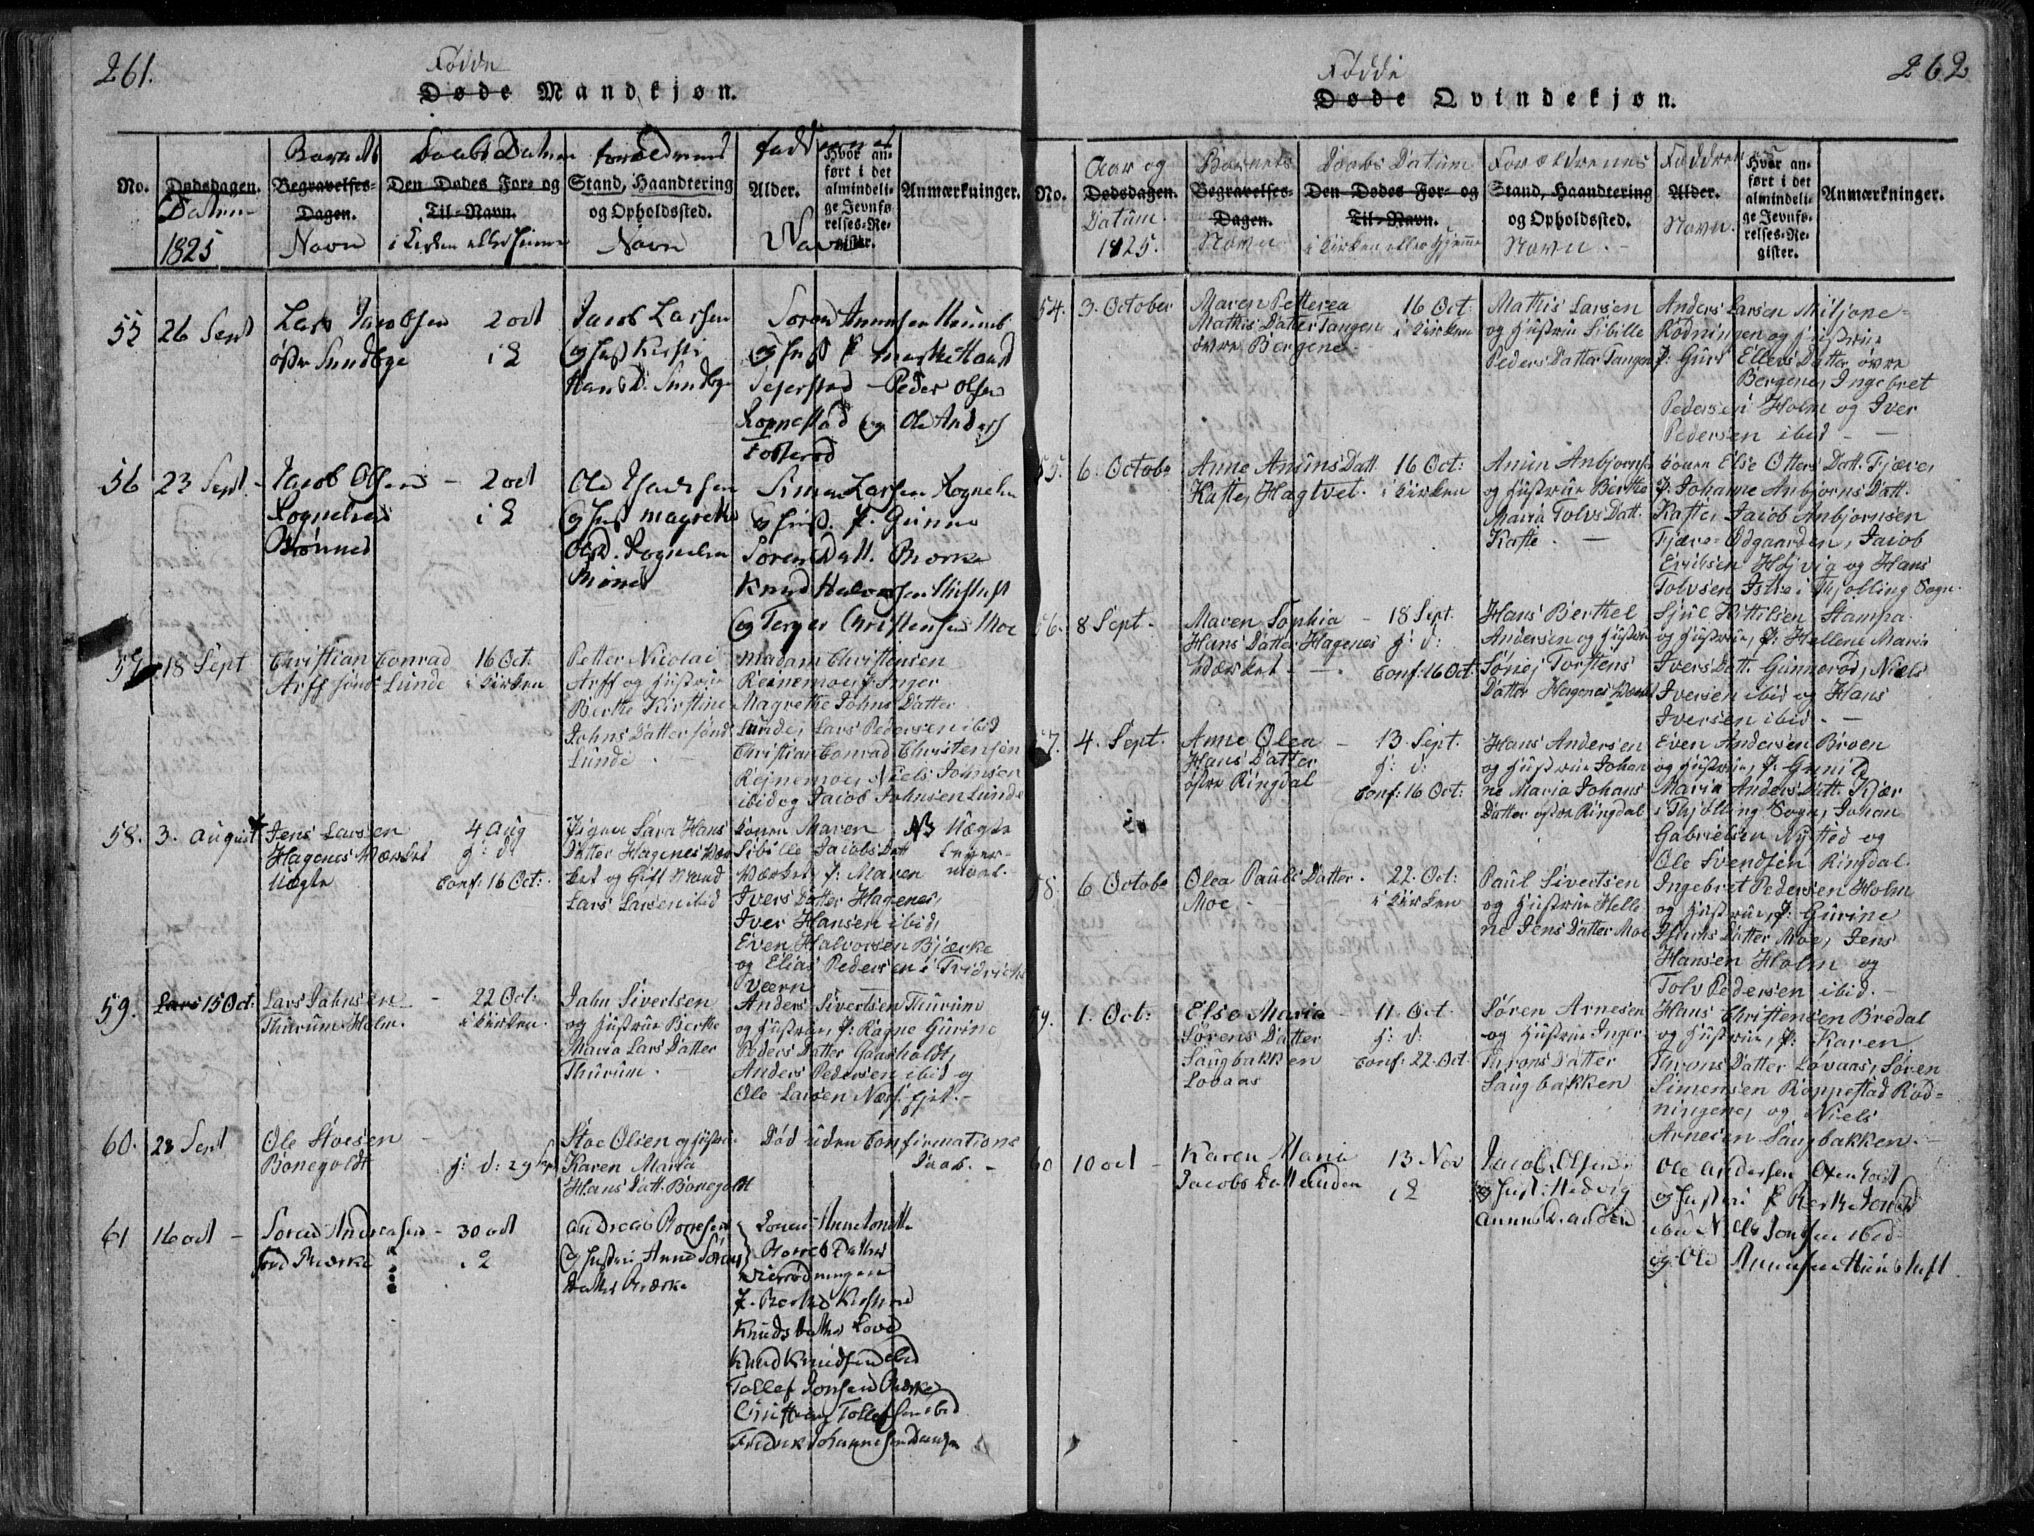 261.
Fødde
Døde Mandkjøn.
No.
Dødsdagen.
Datum
1825
Barnets
Begravelses-
Dagen.
Navn
Daabs Datum
Den Dødes For- og
Til-Navn.
i Kirken eller Hjemme
Forældrenes
Stand, Haandtering
og Opholdssted.
Navn
Faddernes
Alder.
Navn
Hvor an-
ført i det
almindeli-
ge Jevnfø-
relses-Re-
gister.
Anmærkninger.
55
26 Sept
Lars Jacobsen
østre Sundbye
2 oct
i K
Jacob Larsen
og hust Kirsti
Hans D. Sundbye
og hust P.
Seierstad - Peder Olsen
Roppestad og Ole Anders
56
23 Sept.
Jacob Olsen
Rognelien
Brønnes
2 oct
i K
og hust Magrethe
Ols D. Rognelien
Simen Larsen Rognelien
og hust. P. Gunne
Sørens Datt. Bierke
Knud Halvorsen
og Terger Christensen Moe
57
18 Sept
Christian Conrad
Arff sønd: Lunde
16 Oct:
i Kirken
Petter Nicolai
Arff og Hustrue
Berthe Kirstine
Johns Datter sønd
Lunde
Madam Christensen
Reinemoe, P. Inger
Magrethe Johns Datter
Lunde, Lars Pedersen ibid
Christian Conrad Christensen
Rejnemoe, Niels Johnsen
ibid og Jacob Johnsen Lunde
58.
3. August
Jens Larsen
Hagenes Værket
Uægte
4 Aug
h: d:
Conf: 16 Oct:
Pigen Sara Hans
Datter Hagenes Vær
ket og Gift Mand
Lars Larsen ibid
Konen Maren
Sibille Jacobs Datt
Værket P: Maren
Ivers Datter Hagenes,
Iver Hansen ibid,
Even Halvorsen Bjærke
og Elias Pedersen i Fridrichs
Værn
NB Uægte
Leier-
maal.
59.
Lars 15 Oct:
Lars Jahnsen
Thurum Holm.
22 Oct:
i Kirken.
Jahn Sivertsen
og Hustrue Berthe
Maria Lars Datter
Thurum
Anders Sivertsen Thurum
og Hustrue, P: Ragne Gurine
Peders Datter Gaasholdt,
Anders Pedersen ibid og
Ole Larsen Næsfjet.
60.
28 Sept
Ole Stoesen
Bonegoldt
h: d: 29 Sept
Stoe Olsen og Hustrue
Karen Maria
Hans Datt. Bonegoldt
Død uden Confirmations
Daab.
61
16 oct
Søren Andreasen
sød Bierke
30 oct
i K
Andreas
og Hustrue Anne Sørens
datter Bierke
P. Berthe Kirstine
Knuds datter Love
Knud Knudsen ibid
Tollef Jonsen Bierke
Christian Tollefsen ibid
262
Fødde
Døde Qvindekjøn.
No.
Aar og
Dødsdagen.
Datum.
1825.
Barnets
Begravelses-
Dagen.
Navn
Daabs Datum
Den Dødes For- og
Til-Navn.
i Kirken eller Hjemme
Forældrenes
Stand, Haandtering
og Opholdssted.
Navn.
Faddernes
Alder.
Navn.
Hvor an-
ført i det
almindeli-
ge Jevnfø-
relses-Re-
gister.
Anmærkninger.
54.
3. October
Maren Petterea
Mathis Datter Tangen
øvre Bergene
16 Oct
i Kirken
Mathis Larsen
og Hustrue Sibille
Peders Datter Tangen
Anders Larsen Miljone-
Rødningen og Hustrue
P: Guri Ellevs Datter øvre
Bergene, Ingebret
Pedersen Holm og Iver
Pedersen ibid
55.
6. Octobr
Anne Anuns Datt.
Kaste, Hagtvet.
16 Oct:
i Kirken
Anun Anbjørnsen
og Hustrue Berthe
Maria Tolvs Datt.
Kaste.
Konen Else Otters Datt. Fjære,
P. Johanne Anbjørns Datt.
Kaste, Jacob Anbjørnsen
Fjære-Odgaarden, Jacob
Erichsen Højvig og Hans
Tolvsen Istre i Thjølling Sogn.
56.
8 Sept.
Maren Sophia
Hans Datter Hagenes
Værket
18 Sept.
h: d:
Conf: 16 Oct.
Hans Berthel
Andersen og Hustrue
Søne, Torstens
Datter Hagenes Værket
Sjul Kittilsen Stampa
og Hustrue, P: Hellene Maria
Ivers Datt. Gunnerød, Niels
Iversen ibid og Hans
Iversen ibid.
57.
4. Sept.
Anne Olea
Hans Datter
østre Ringdal
13 Sept.
h: d:
Conf: 16 Oct:
Hans Andersen
og Hustrue Johan
ne Maria Johans
Datter østre Ringdal
Even Andersen Broen
og Hustrue, P: Gunild
Maria Anders Datt. Kjær
i Thjølling Sogn, Johan
Gabrielsen Nysted og
Ole Svendsen Ringdal.
58.
6 Octobr
Olea Pauls Datter.
Moe
22 Oct:
i Kirken
Paul Sivertsen
og Hustrue Helle
ne Jens Datter Moe
Ingebret Pedersen Holm
og Hustrue, P: Gurine
Pauls Datter Moe, Jens
Hansen Holm og
Tolv Pedersen ibid.
59.
1. Oct:
Else Maria
Sørens Datter
Saugbakken
Lovaas
11 Oct.
h: d:
Conf: 22 Oct
Søren Arnesen
og Hustrue Inger
Tarons Datter
Saugbakken
Hans Christensen Bredal
og Hustrue, P: Karen
Tarons Datter Lovaas, Søren
Simensen Roppestad Rød-
ningene, og Niels
Arnesen Saugbakken.
60
10 oct
Karen Maria
Jacobs Datt
13 Nov
i K
Jacob Olsen
og Hust: Hedvig
Ole Andersen
og Hustrue P
ibid Niels Jonsen ibid
og Ole